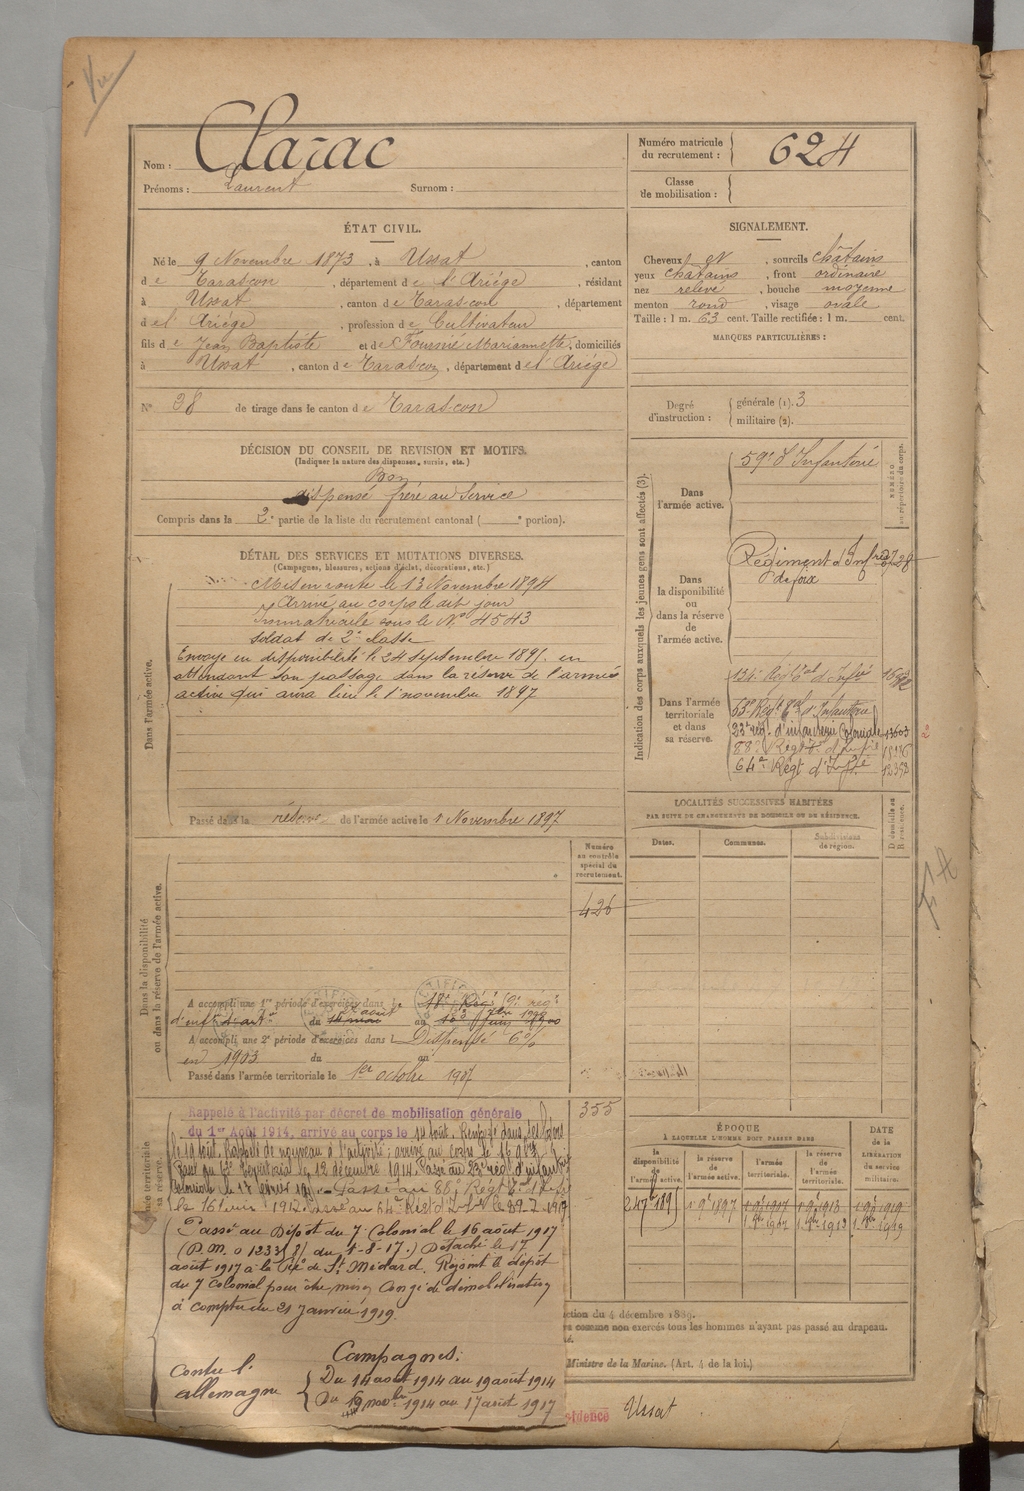 Nom : Clarac
Prénoms : Laurent Surnom :
Numéro matricule du recrutement : 624
Classe de mobilisation :
ÉTAT CIVIL.
Né le 9 Novembre 1873, à Ussat, canton
de Tarascon, département de l'Ariége, résidant
à Ussat, canton de Tarascon, département
de l'Ariége, profession de Cultivateur
fils de Jean Baptiste et de Fournié Mariannette, domiciliés
à Ussat, canton de Tarascon, département de l'Ariége
N° 38 de tirage dans le canton de Tarascon
SIGNALEMENT.
Cheveux et, sourcils châtains
yeux châtains, front ordinaire
nez relevé, bouche moyenne
menton rond, visage ovale
Taille : 1 m. 63 cent. Taille rectifiée : 1 m. cent.
MARQUES PARTICULIÈRES :
Degré d'instruction : générale (1). 3
militaire (2).
DÉCISION DU CONSEIL DE REVISION ET MOTIFS.
(Indiquer la nature des dispenses, sursis, etc.)
Bon
dispensé frère au service
Compris dans la 2e partie de la liste du recrutement cantonal ( e portion).
DÉTAIL DES SERVICES ET MUTATIONS DIVERSES.
(Campagnes, blessures, actions d'éclat, décorations, etc.)
Dans l'armée active.
Mis en route le 13 Novembre 1894
Arrivé au corps le dit jour
Immatriculé sous le N° 4543
soldat de 2e classe
Envoyé en disponibilité le 24 septembre 1895 en
attendant son passage dans la réserve de l'armée
active qui aura lieu le 1 novembre 1897
Passé dans la réserve de l'armée active le 1 Novembre 1897
Indication des corps auxquels les jeunes gens sont affectés (3).
NUMÉRO au répertoire du corps.
Dans l'armée active.
59e d'Infanterie
Dans la disponibilité ou dans la réserve de l'armée active.
Régiment d'Infrie
de foix
Dans l'armée territoriale et dans sa réserve.
134e Régt tal d'Infie
53e Régt tal d'Infanterie
23e rég. d'infanterie Coloniale 13603
88e Régt
64e Régt d'Infie
LOCALITÉS SUCCESSIVES HABITÉES
PAR SUITE DE CHANGEMENTS DE DOMICILE OU DE RÉSIDENCE.
Dates. Communes. Subdivisions de région. D domicile ou R résidence.
Dans la disponibilité ou dans la réserve de l'armée active.
Numéro au contrôle spécial du recrutement.
426
A accompli une 1re période d'exercices dans le 18e Rég 59e rég
d'inft d'art du
A accompli une 2e période d'exercices dans le Dispensé 6 0/0
en 1903 du au
Passé dans l'armée territoriale le 1er octobre 1907
355
Rappelé à l'activité par décret de mobilisation générale
du 1er Août 1914, arrivé au corps le 14 août. Renvoyé dans ses foyers
le 19 août. Rappelé de nouveau à l'activité ; arrivé au corps le 16
Territorial le 12 décembre 1914. Passé au 23e régt d'infantie
Coloniale le
le 16 Passé au 64e Régt d'Infie le 29-7-1917
Passé au Dépôt du 7 Colonial le 16 août 1917
(D.M. du 1-8-17.) Détaché le 17
août 1917 à la de St Médard. Rejoint le dépôt
du 7 Colonial pour être mis en congé de démobilisation
à compter du 21 Janvier 1919.
Campagnes :
Contre l'allemagne
Du 14 août 1914 au 19 août 1914
Du novbre 1914 au 17 août 1917
ÉPOQUE
À LAQUELLE L'HOMME DOIT PASSER DANS
la disponibilité de l'armée active. la réserve de l'armée active. l'armée territoriale. la réserve de l'armée territoriale.
DATE de la LIBÉRATION du service militaire.
1 9bre 1897
ction du 4 décembre 1889.
comme non exercés tous les hommes n'ayant pas passé au drapeau.
Ministre de la Marine. (Art. 4 de la loi.)
sidence Ussat